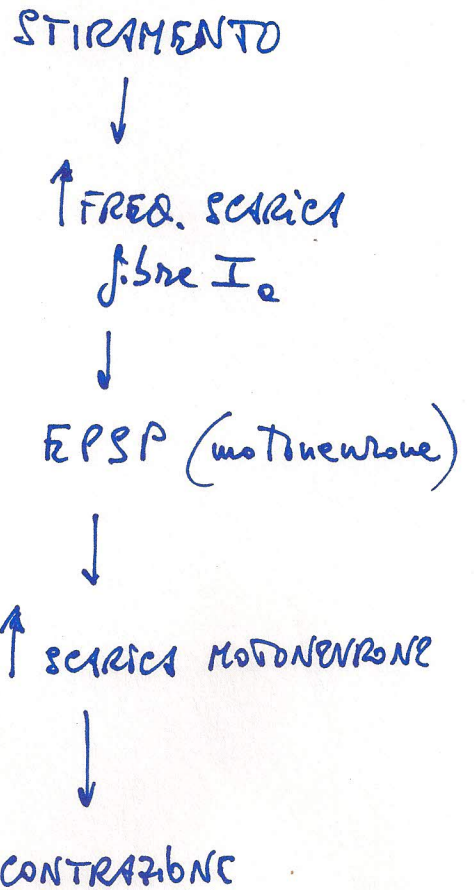 STIRAMENTO
↓
↑ FREQ. SCARICA
fibre Ia
↓
EPSP (motoneurone)
↓
↑ SCARICA MOTONEURONE
↓
CONTRAZIONE